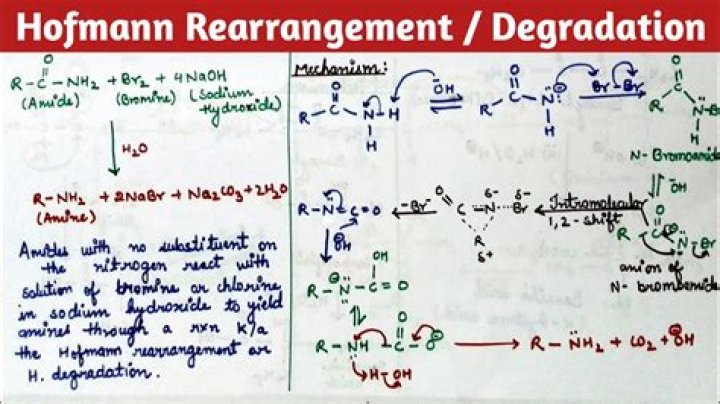 Hofmann Rearrangement / Degradation
R-C-NH₂ + Br₂ + 4NaOH
O
(Amide) (Bromine) (Sodium
Hydroxide)
H₂O
R-NH₂ + 2NaBr + Na₂CO₃ + 2H₂O
(Amine)
Amides with no substituent on
the nitrogen react with
solution of bromine or chlorine
in sodium hydroxide to yield
amines through a rxn k/a
the Hofmann rearrangement or
H. degradation.
Mechanism:
O
R-C-N-H
H
ŌH
O
R C N:⊖
H
Br-Br
O
R C N-Br
H
N-Bromoamide
ŌH
O
R C N-Br
anion of
N-bromamide
Intramolecular
1,2-shift
O C N Br
δ- δ-
R
δ+
-Br⁻
R-N=C=O
ŌH
OH
R-N-C=O
O
R-NH-C-O⊖
H-OH
R-NH₂ + CO₂ + ŌH